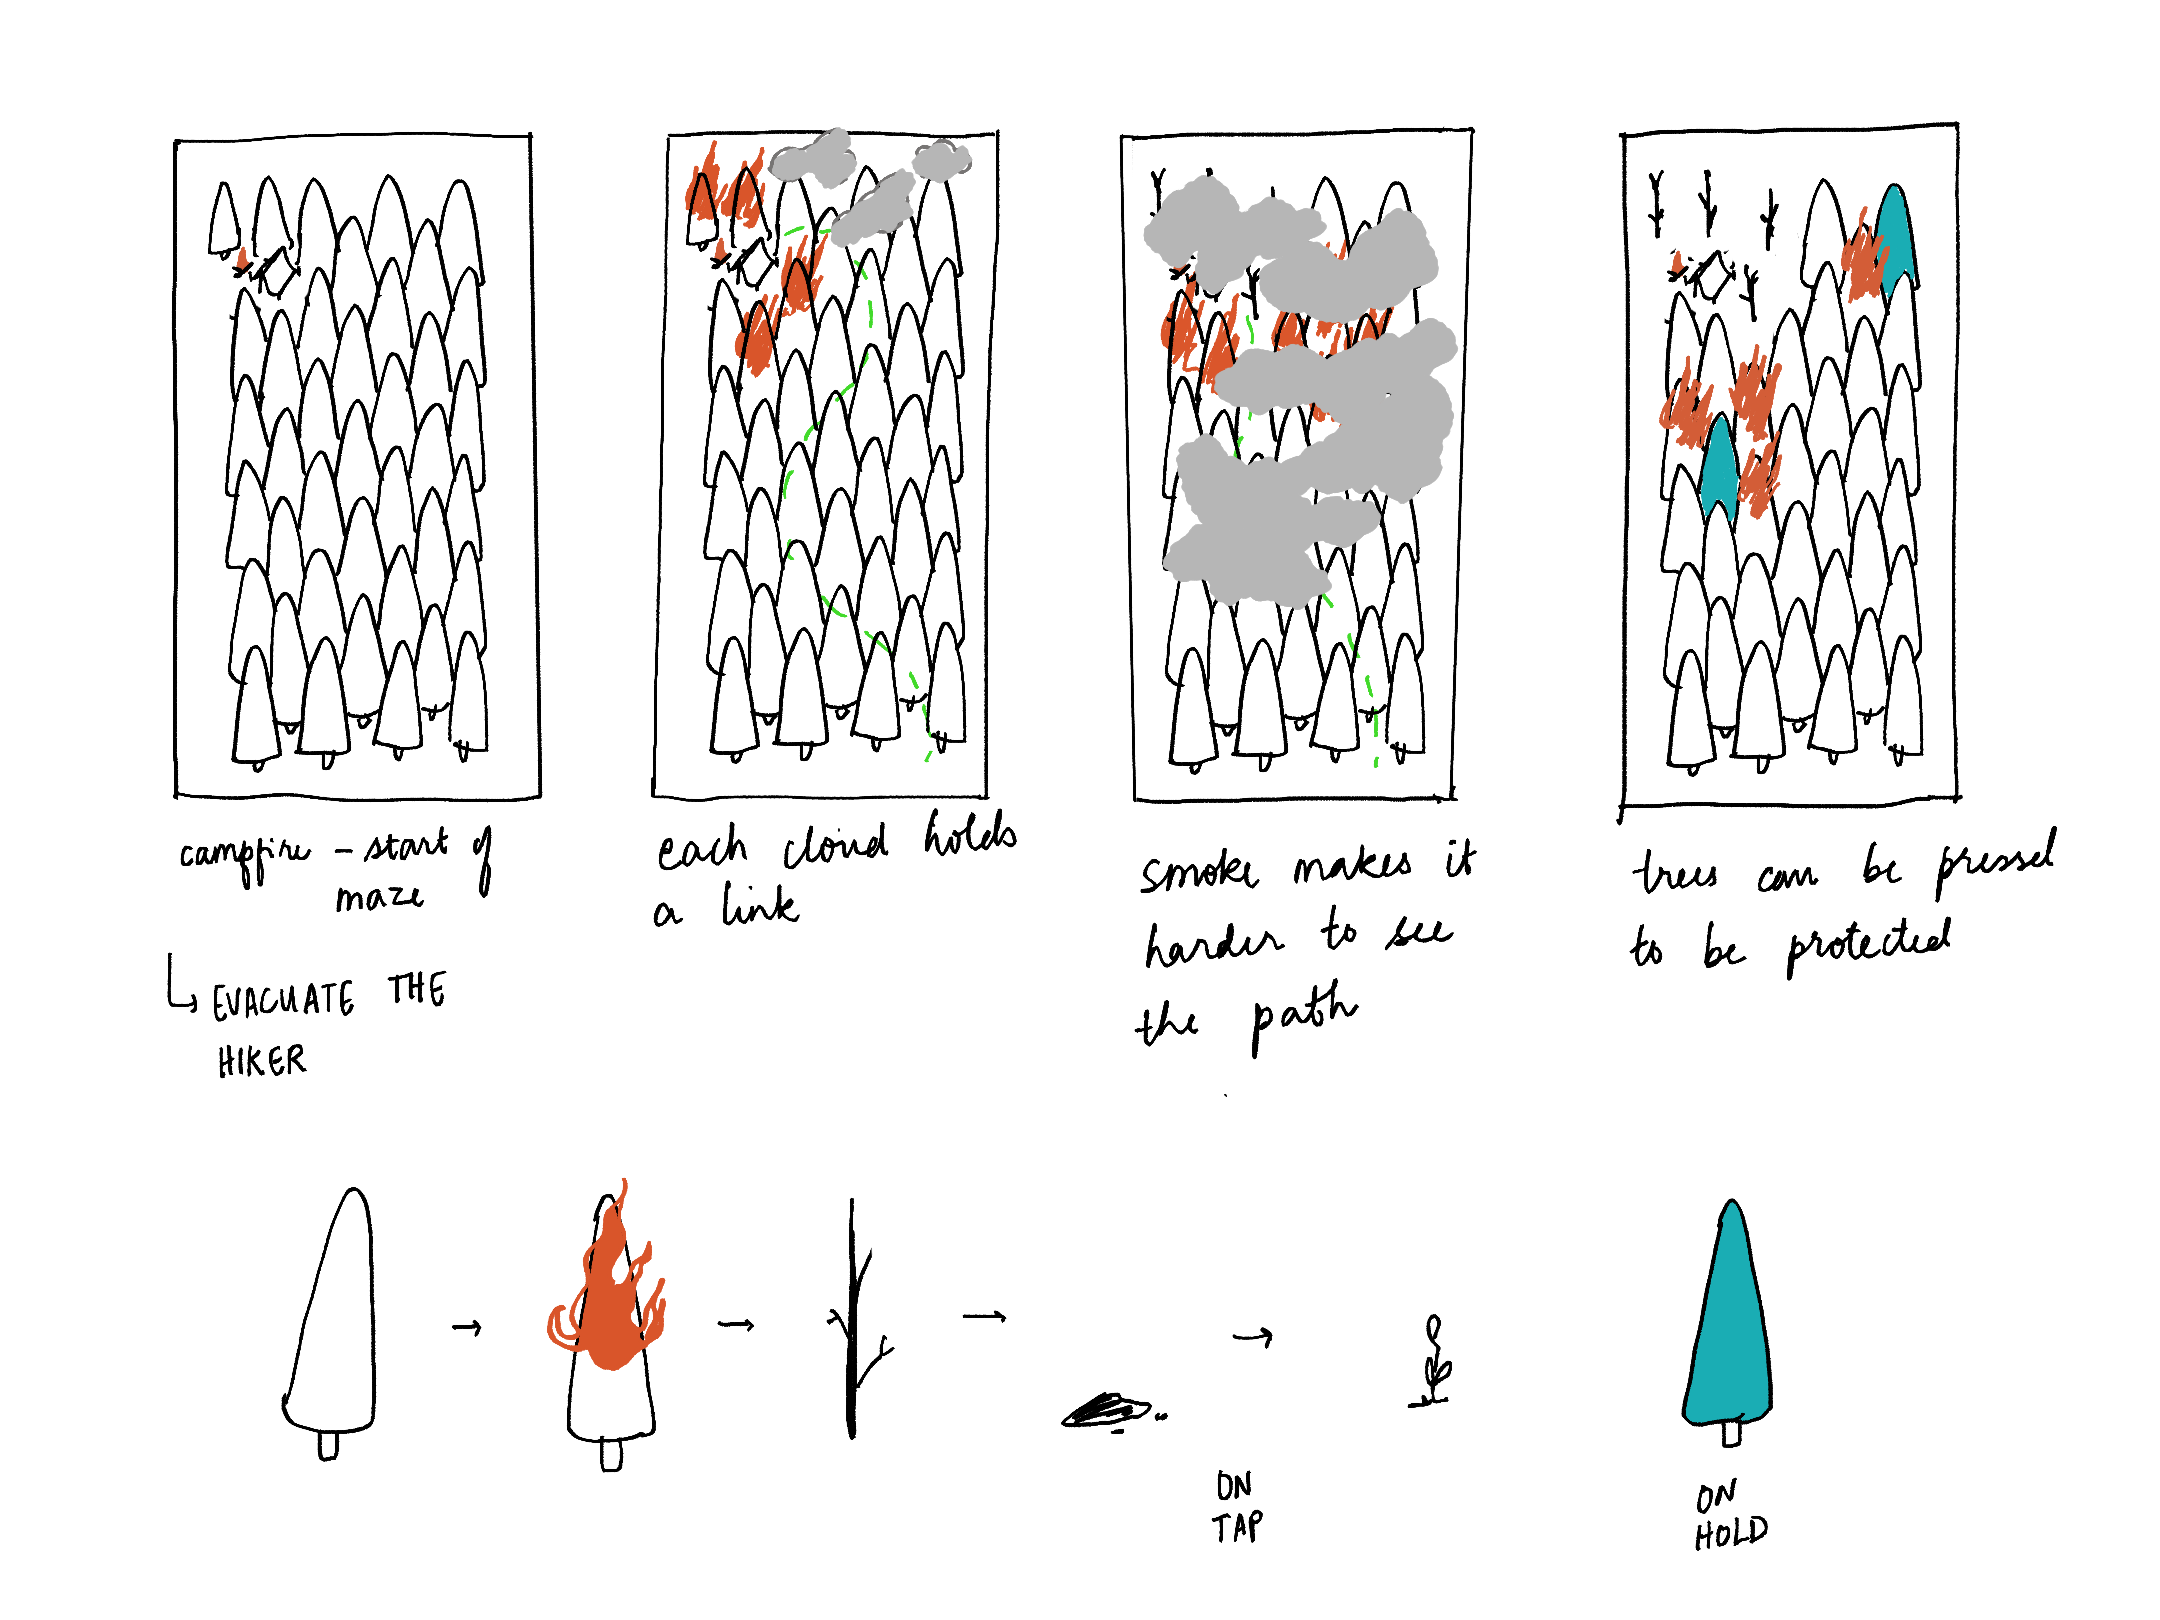 campfire – start of
maze
EVACUATE THE
HIKER
each cloud holds
a link
smoke makes it
harder to see
the path
trees can be pressed
to be protected
ON
TAP
ON
HOLD